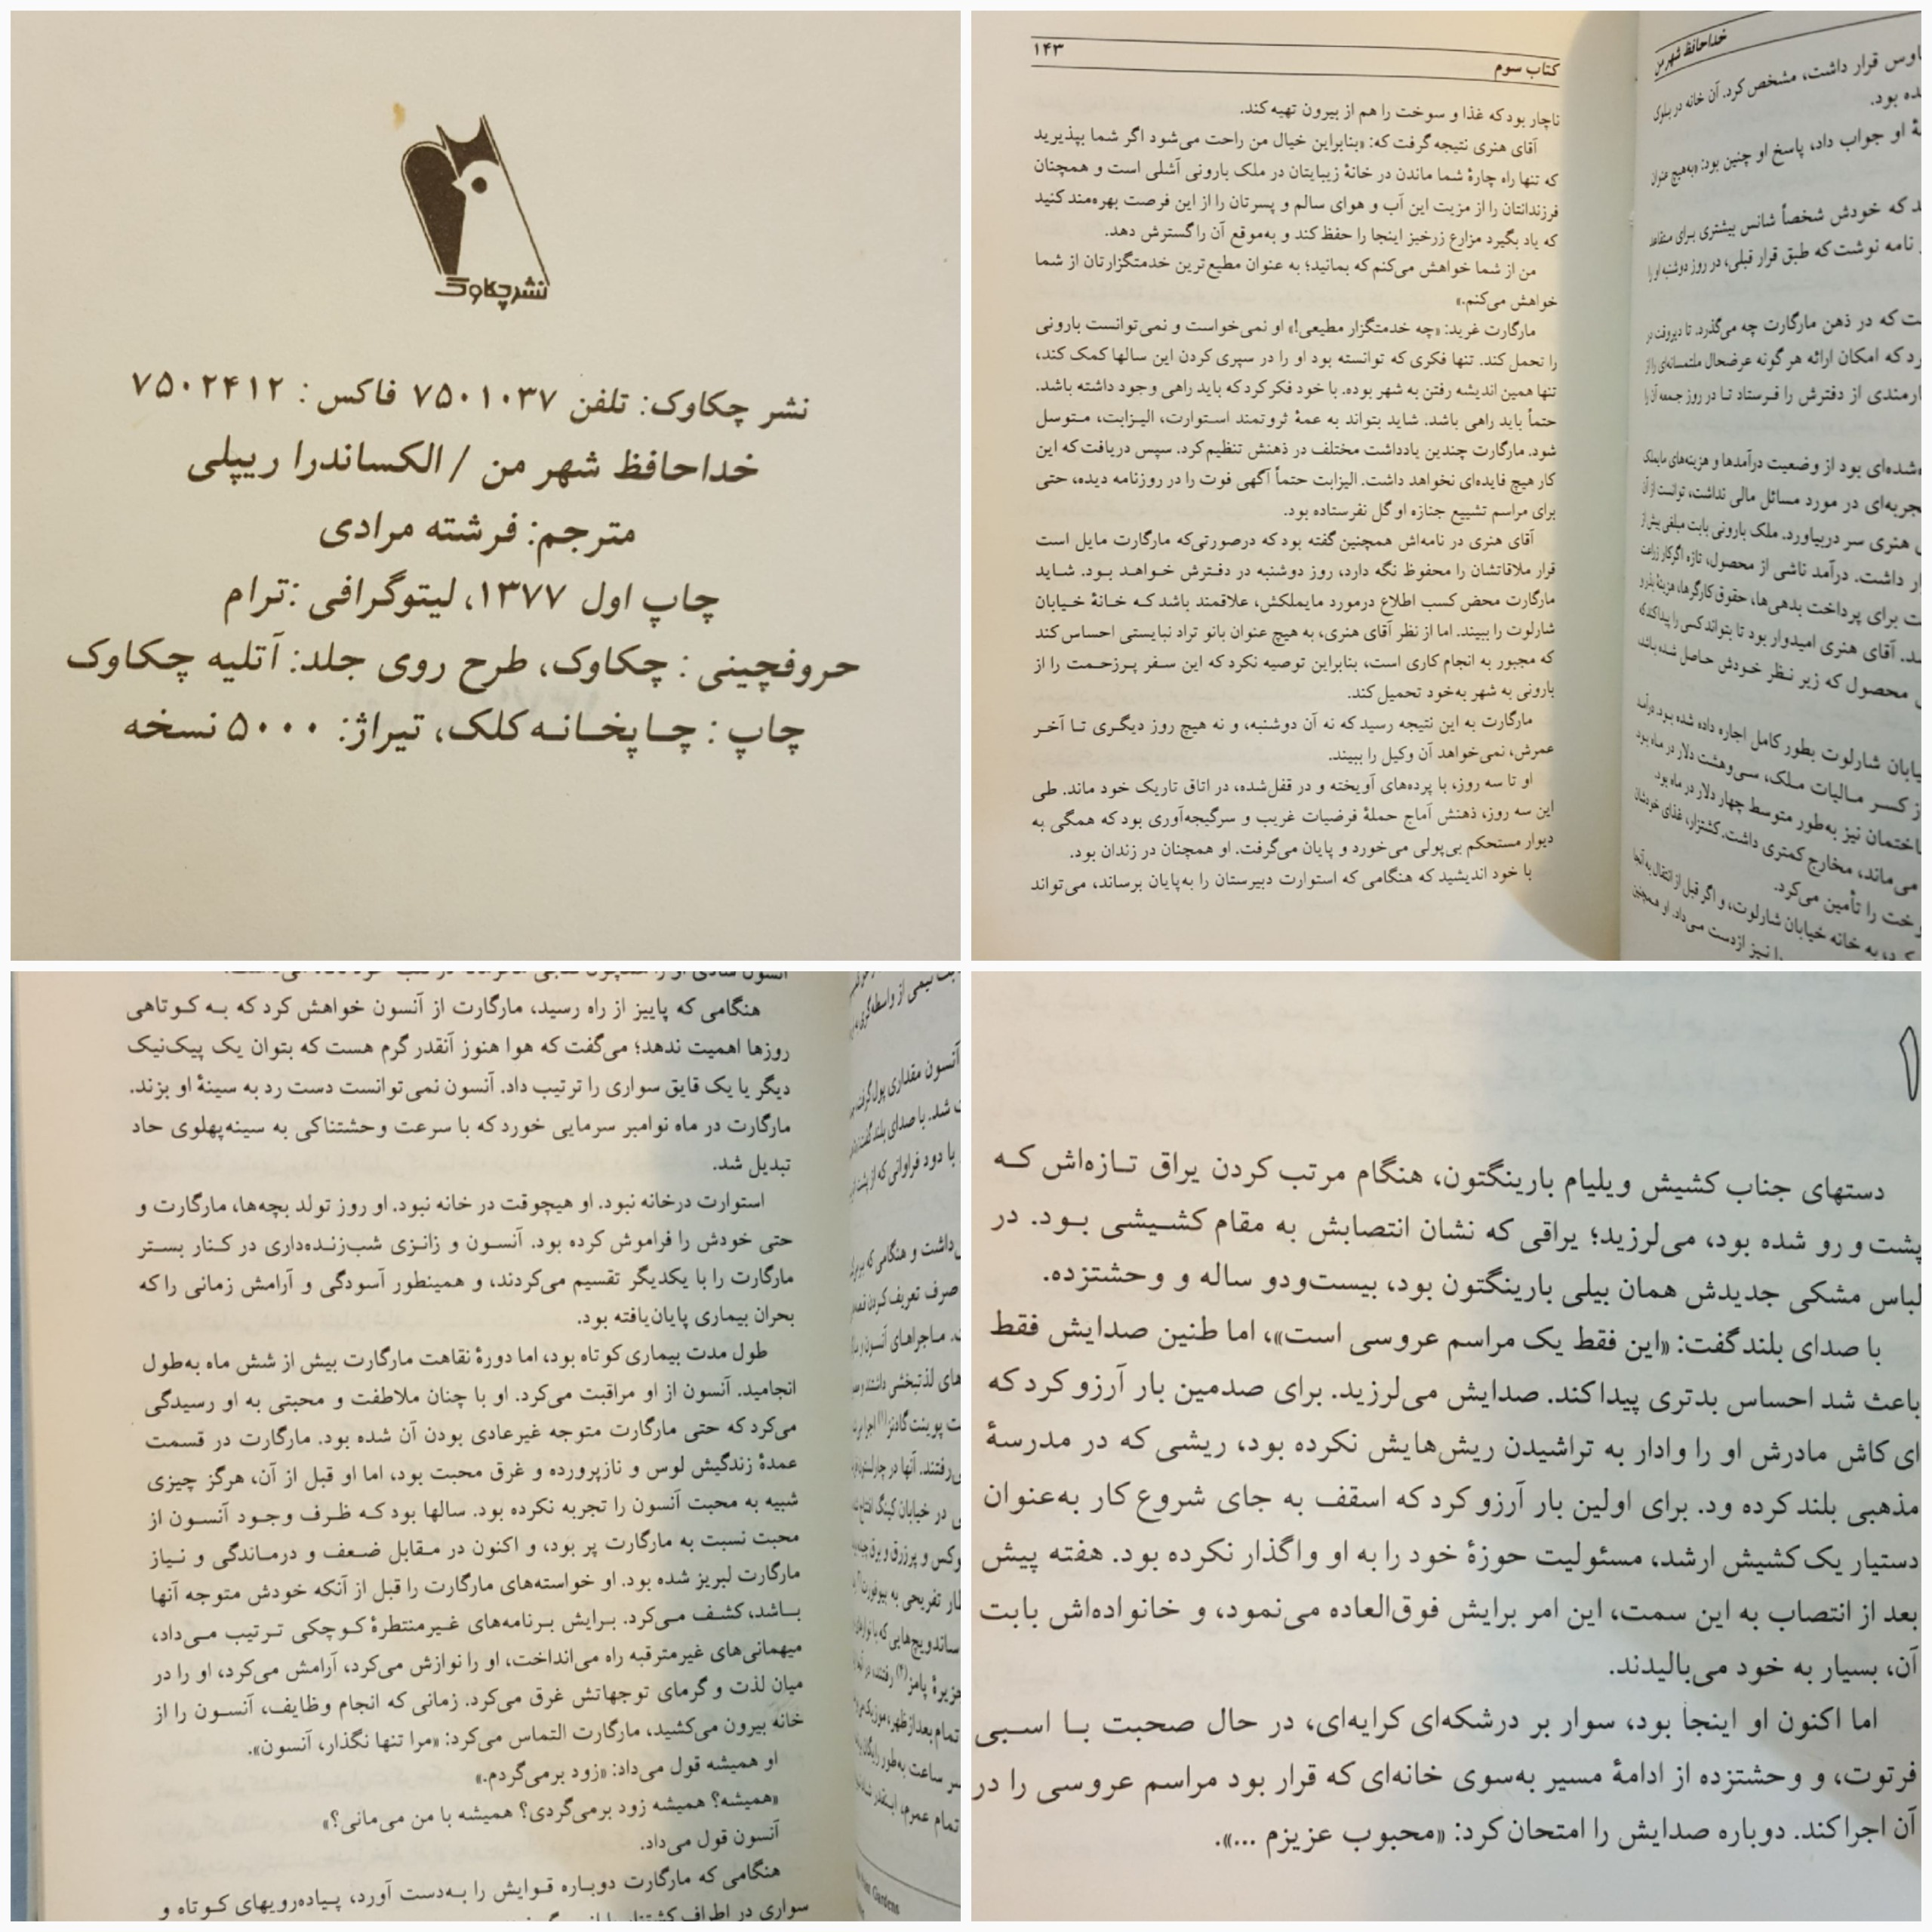 نشر چکاوک
نشر چکاوک: تلفن ۷۵۰۱۰۳۷ فاکس: ۷۵۰۲۴۱۲
خداحافظ شهر من / الکساندرا ریپلی
مترجم: فرشته مرادی
چاپ اول ۱۳۷۷، لیتوگرافی :ترام
حروفچینی : چکاوک، طرح روی جلد: آتلیه چکاوک
چاپ : چاپخانه کلک، تیراژ: ۵۰۰۰ نسخه
کتاب سوم ۱۴۳
ناچار بود که غذا و سوخت را هم از بیرون تهیه کند.
آقای هنری نتیجه گرفت که: «بنابراین خیال من راحت می‌شود اگر شما بپذیرید
که تنها راه چارهٔ شما ماندن در خانهٔ زیبایتان در ملک بارونی آشلی است و همچنان
فرزندانتان را از مزیت این آب و هوای سالم و پسرتان را از این فرصت بهره‌مند کنید
که یاد بگیرد مزارع زرخیز اینجا را حفظ کند و به‌موقع آن را گسترش دهد.
من از شما خواهش می‌کنم که بمانید؛ به عنوان مطیع‌ترین خدمتگزارتان از شما
خواهش می‌کنم.»
مارگارت غرید: «چه خدمتگزار مطیعی!» او نمی‌خواست و نمی‌توانست بارونی
را تحمل کند. تنها فکری که توانسته بود او را در سپری کردن این سالها کمک کند،
تنها همین اندیشه رفتن به شهر بوده. با خود فکر کرد که باید راهی وجود داشته باشد.
حتماً باید راهی باشد. شاید بتواند به عمهٔ ثروتمند استوارت، الیزابت، متوسل
شود. مارگارت چندین یادداشت مختلف در ذهنش تنظیم کرد. سپس دریافت که این
کار هیچ فایده‌ای نخواهد داشت. الیزابت حتماً آگهی فوت را در روزنامه دیده، حتی
برای مراسم تشییع جنازه او گل نفرستاده بود.
آقای هنری در نامه‌اش همچنین گفته بود که درصورتی‌که مارگارت مایل است
قرار ملاقاتشان را محفوظ نگه دارد، روز دوشنبه در دفترش خواهد بود. شاید
مارگارت محض کسب اطلاع درمورد مایملکش، علاقمند باشد که خانهٔ خیابان
شارلوت را ببیند. اما از نظر آقای هنری، به هیچ عنوان بانو تراد نبایستی احساس کند
که مجبور به انجام کاری است، بنابراین توصیه نکرد که این سفر پرزحمت را از
بارونی به شهر به‌خود تحمیل کند.
مارگارت به این نتیجه رسید که نه آن دوشنبه، و نه هیچ روز دیگری تا آخر
عمرش، نمی‌خواهد آن وکیل را ببیند.
او تا سه روز، با پرده‌های آویخته و در قفل‌شده، در اتاق تاریک خود ماند. طی
این سه روز، ذهنش آماج حملهٔ فرضیات غریب و سرگیجه‌آوری بود که همگی به
دیوار مستحکم بی‌پولی می‌خورد و پایان می‌گرفت. او همچنان در زندان بود.
با خود اندیشید که هنگامی که استوارت دبیرستان را به‌پایان برساند، می‌تواند
خداحافظ شهر من
قرار داشت، مشخص کرد. آن خانه در بلوک
بود.
او جواب داد، پاسخ او چنین بود: «به‌هیچ عنوان
که خودش شخصاً شانس بیشتری برای متقاعد
نامه نوشت که طبق قرار قبلی، در روز دوشنبه او را
که در ذهن مارگارت چه می‌گذرد. تا دیروقت در
که امکان ارائه هر گونه عرضحال ملتمسانه‌ای را از
از دفترش را فرستاد تا در روز جمعه آن را
بود از وضعیت درآمدها و هزینه‌های مایملک
در مورد مسائل مالی نداشت، توانست از آن
هنری سر دربیاورد. ملک بارونی بابت مبلغی بیش از
داشت. درآمد ناشی از محصول، تازه اگر کار زراعت
برای پرداخت بدهی‌ها، حقوق کارگرها، هزینهٔ بذر و
آقای هنری امیدوار بود تا بتواند کسی را پیدا کند که
محصول که زیر نظر خودش حاصل شده باشد،
شارلوت بطور کامل اجاره داده شده بود. درآمد
کسر مالیات ملک، سی‌وهشت دلار در ماه بود
نیز به‌طور متوسط چهار دلار در ماه بود.
می‌ماند، مخارج کمتری داشت. کشتزار، غذای خودشان
را تأمین می‌کرد.
به خانه خیابان شارلوت، و اگر قبل از انتقال به آنجا
را نیز ازدست می‌داد. او همچنین
هنگامی که پاییز از راه رسید، مارگارت از آنسون خواهش کرد که به کوتاهی
روزها اهمیت ندهد؛ می‌گفت که هوا هنوز آنقدر گرم هست که بتوان یک پیک‌نیک
دیگر یا یک قایق سواری را ترتیب داد. آنسون نمی‌توانست دست رد به سینهٔ او بزند.
مارگارت در ماه نوامبر سرمایی خورد که با سرعت وحشتناکی به سینه‌پهلوی حاد
تبدیل شد.
استوارت درخانه نبود. او هیچوقت در خانه نبود. او روز تولد بچه‌ها، مارگارت و
حتی خودش را فراموش کرده بود. آنسون و زانزی شب‌زنده‌داری در کنار بستر
مارگارت را با یکدیگر تقسیم می‌کردند، و همینطور آسودگی و آرامش زمانی را که
بحران بیماری پایان‌یافته بود.
طول مدت بیماری کوتاه بود، اما دورهٔ نقاهت مارگارت بیش از شش ماه به‌طول
انجامید. آنسون از او مراقبت می‌کرد. او با چنان ملاطفت و محبتی به او رسیدگی
می‌کرد که حتی مارگارت متوجه غیرعادی بودن آن شده بود. مارگارت در قسمت
عمدهٔ زندگیش لوس و نازپرورده و غرق محبت بود، اما او قبل از آن، هرگز چیزی
شبیه به محبت آنسون را تجربه نکرده بود. سالها بود که ظرف وجود آنسون از
محبت نسبت به مارگارت پر بود، و اکنون در مقابل ضعف و درماندگی و نیاز
مارگارت لبریز شده بود. او خواسته‌های مارگارت را قبل از آنکه خودش متوجه آنها
باشد، کشف می‌کرد. برایش برنامه‌های غیرمنتظرهٔ کوچکی ترتیب می‌داد،
میهمانی‌های غیرمترقبه راه می‌انداخت، او را نوازش می‌کرد، آرامش می‌کرد، او را در
میان لذت و گرمای توجهاتش غرق می‌کرد. زمانی که انجام وظایف، آنسون را از
خانه بیرون می‌کشید، مارگارت التماس می‌کرد: «مرا تنها نگذار، آنسون».
او همیشه قول می‌داد: «زود برمی‌گردم.»
«همیشه؟ همیشه زود برمی‌گردی؟ همیشه با من می‌مانی؟»
آنسون قول می‌داد.
هنگامی که مارگارت دوباره قوایش را به‌دست آورد، پیاده‌رویهای کوتاه و
سواری در اطراف
نیمی از واسطه‌گری
آنسون مقداری پول
شد. با صدای بلند
با دود فراوانی که از پشت
داشت و هنگامی که
صرف تعریف کردن
ماجراهای آنسون
لذتبخشی داشتند
پوینت گادنز(۱)
آنها در
در خیابان کینگ
پرزرق و برق
تفریحی به
ساندویچ‌هایی که
جزیرهٔ پامز(۲) رفتند،
تمام بعدازظهر
ساعت به‌طور
تمام عمرم،
Gardens
۱
دستهای جناب کشیش ویلیام بارینگتون، هنگام مرتب کردن یراق تازه‌اش که
پشت و رو شده بود، می‌لرزید؛ یراقی که نشان انتصابش به مقام کشیشی بود. در
لباس مشکی جدیدش همان بیلی بارینگتون بود، بیست‌ودو ساله و وحشتزده.
با صدای بلند گفت: «این فقط یک مراسم عروسی است»، اما طنین صدایش فقط
باعث شد احساس بدتری پیدا کند. صدایش می‌لرزید. برای صدمین بار آرزو کرد که
ای کاش مادرش او را وادار به تراشیدن ریش‌هایش نکرده بود، ریشی که در مدرسهٔ
مذهبی بلند کرده ود. برای اولین بار آرزو کرد که اسقف به جای شروع کار به‌عنوان
دستیار یک کشیش ارشد، مسئولیت حوزهٔ خود را به او واگذار نکرده بود. هفته پیش
بعد از انتصاب به این سمت، این امر برایش فوق‌العاده می‌نمود، و خانواده‌اش بابت
آن، بسیار به خود می‌بالیدند.
اما اکنون او اینجا بود، سوار بر درشکه‌ای کرایه‌ای، در حال صحبت با اسبی
فرتوت، و وحشتزده از ادامهٔ مسیر به‌سوی خانه‌ای که قرار بود مراسم عروسی را در
آن اجرا کند. دوباره صدایش را امتحان کرد: «محبوب عزیزم ...».